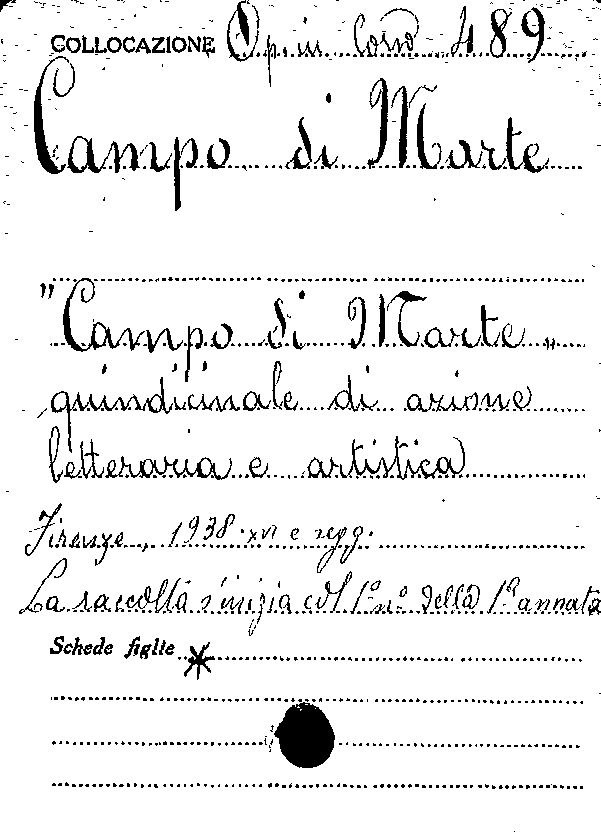 COLLOCAZIONE Op. in Corso 489
Campo di Marte
"Campo di Marte"
quindicinale di azione
letteraria e artistica
Firenze, 1938-XVI e segg.
La raccolta s'inizia col 1° n° della 1ª annata
Schede figlie *